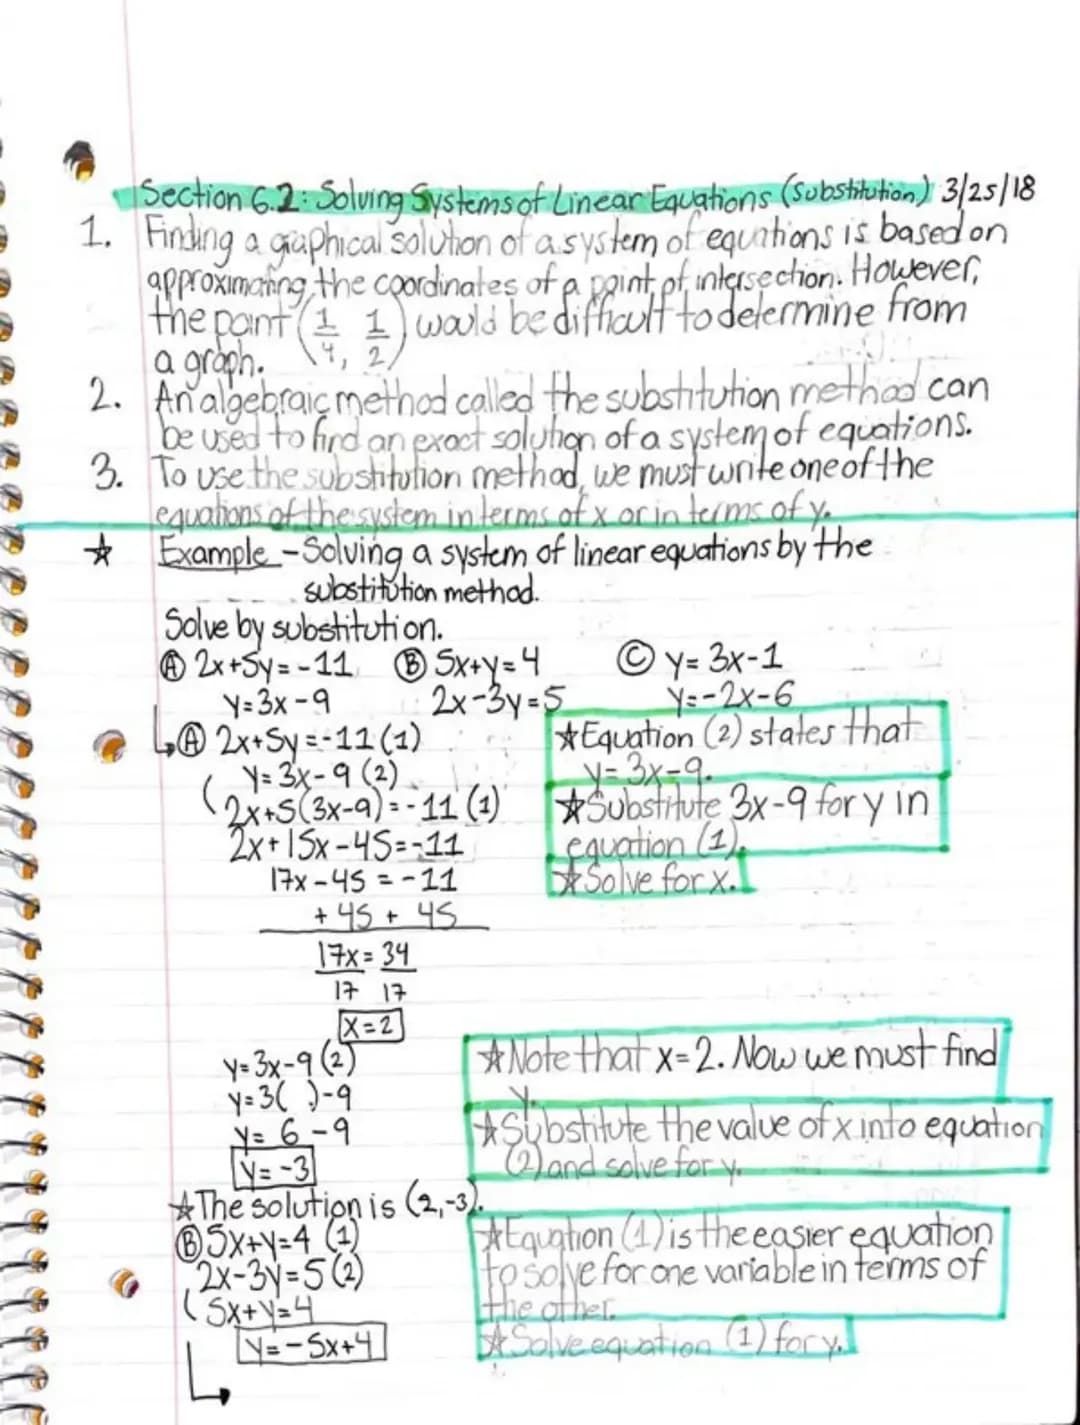 Section 6.2: Solving Systems of Linear Equations (Substitution) 3/25/18
1. Finding a graphical solution of a system of equations is based on
approximating the coordinates of a point of intersection. However,
the point (1/4, 1/2) would be difficult to determine from
a graph.
2. An algebraic method called the substitution method can
be used to find an exact solution of a system of equations.
3. To use the substitution method, we must write one of the
equations of the system in terms of x or in terms of y.
★ Example - Solving a system of linear equations by the
substitution method.
Solve by substitution.
Ⓐ 2x+5y=-11 Ⓑ 5x+y=4 Ⓒ y=3x-1
y=3x-9 2x-3y=5 y=-2x-6
↳Ⓐ 2x+5y=-11 (1)
y=3x-9 (2)
2x+5(3x-9)=-11 (1)
2x+15x-45=-11
17x-45=-11
+45 + 45
17x=34
17 17
x=2
★Equation (2) states that
y=3x-9.
★Substitute 3x-9 for y in
equation (1).
★Solve for x.
y=3x-9 (2)
y=3( )-9
y=6-9
y=-3
★Note that x=2. Now we must find
y.
★Substitute the value of x into equation
(2) and solve for y.
★The solution is (2,-3).
Ⓑ 5x+y=4 (1)
2x-3y=5 (2)
5x+y=4
y=-5x+4
★Equation (1) is the easier equation
to solve for one variable in terms of
the other.
★Solve equation (1) for y.